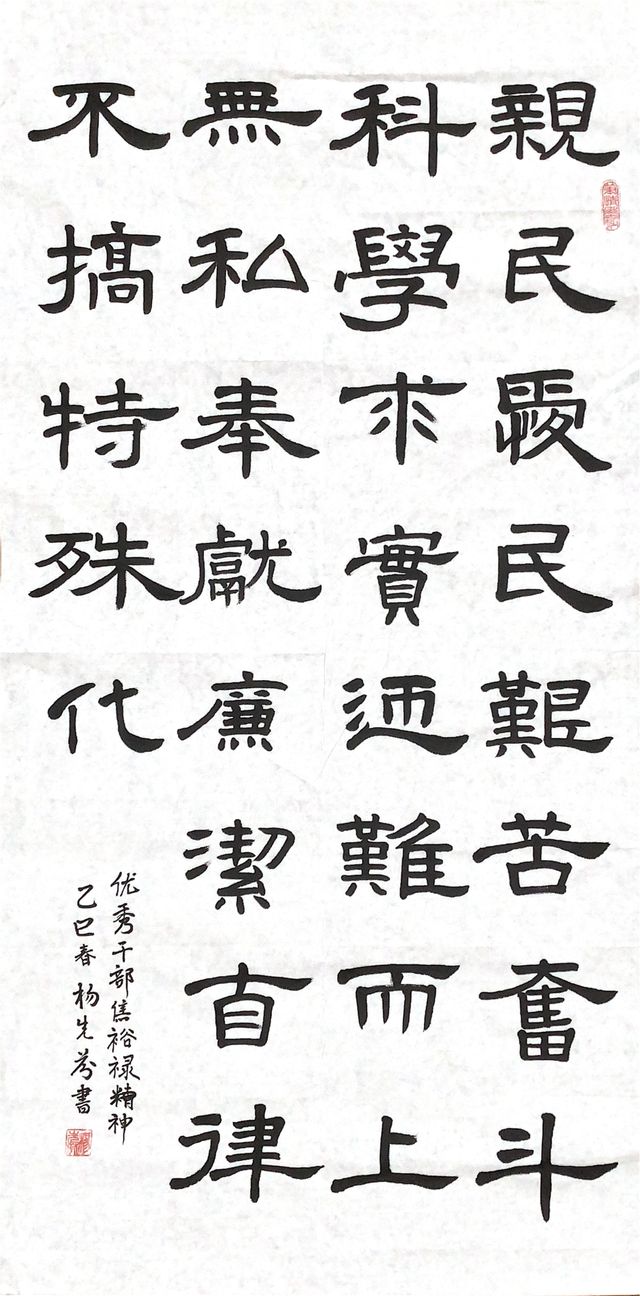 親民愛民艱苦奮斗
科學求實迎難而上
無私奉獻廉潔自律
不搞特殊化
优秀干部焦裕禄精神
乙巳春杨先芬書